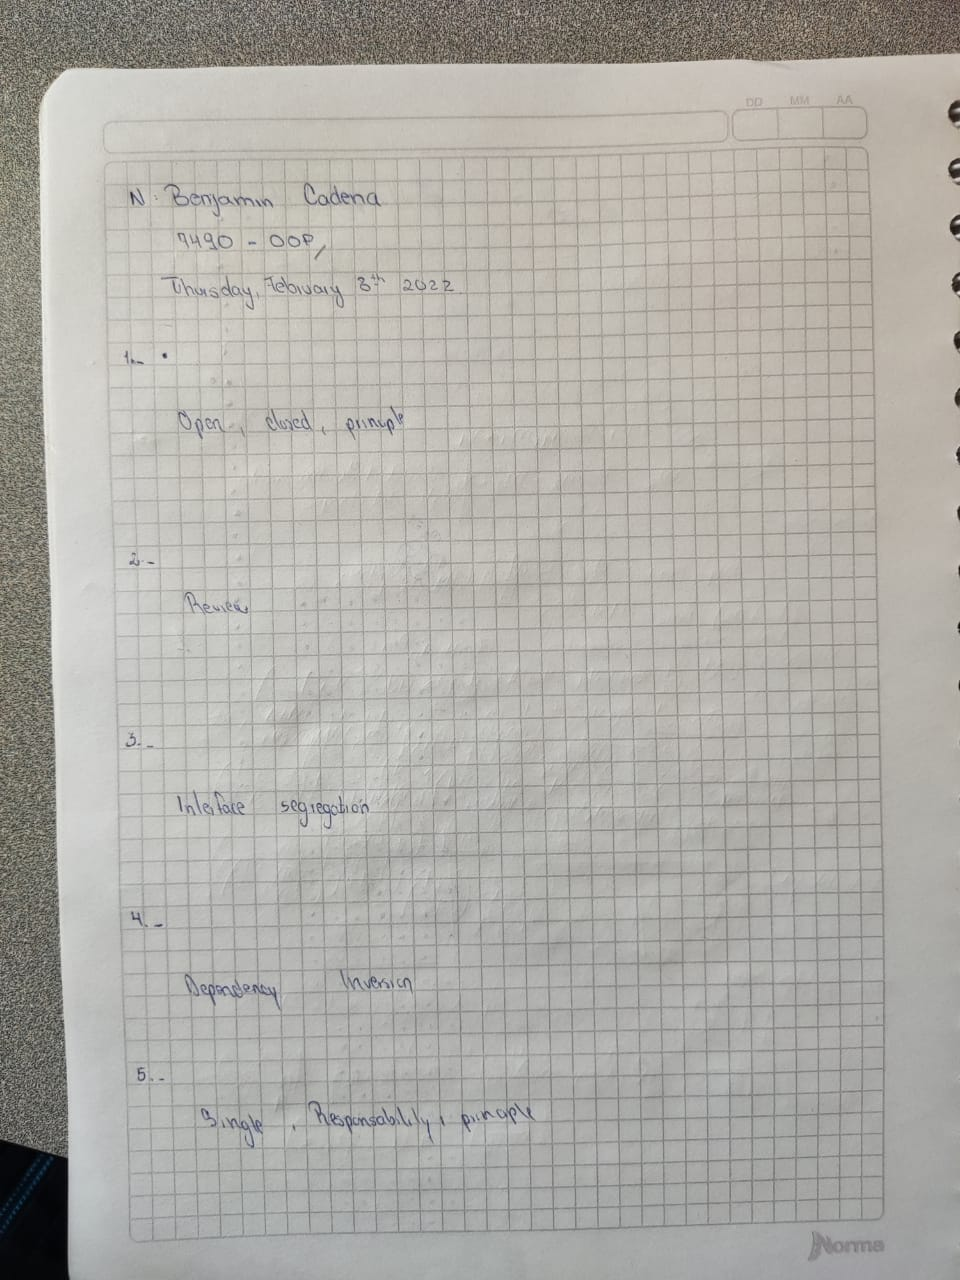 DD MM AA
N: Benjamin Cadena
7490 - OOP,
Thursday, February 3th 2022
1.- •
Open, closed, principle
2.-
Review
3.-
Interface segregation
4.-
Dependency Inversion
5.-
Single, Responsability, principle
Norma